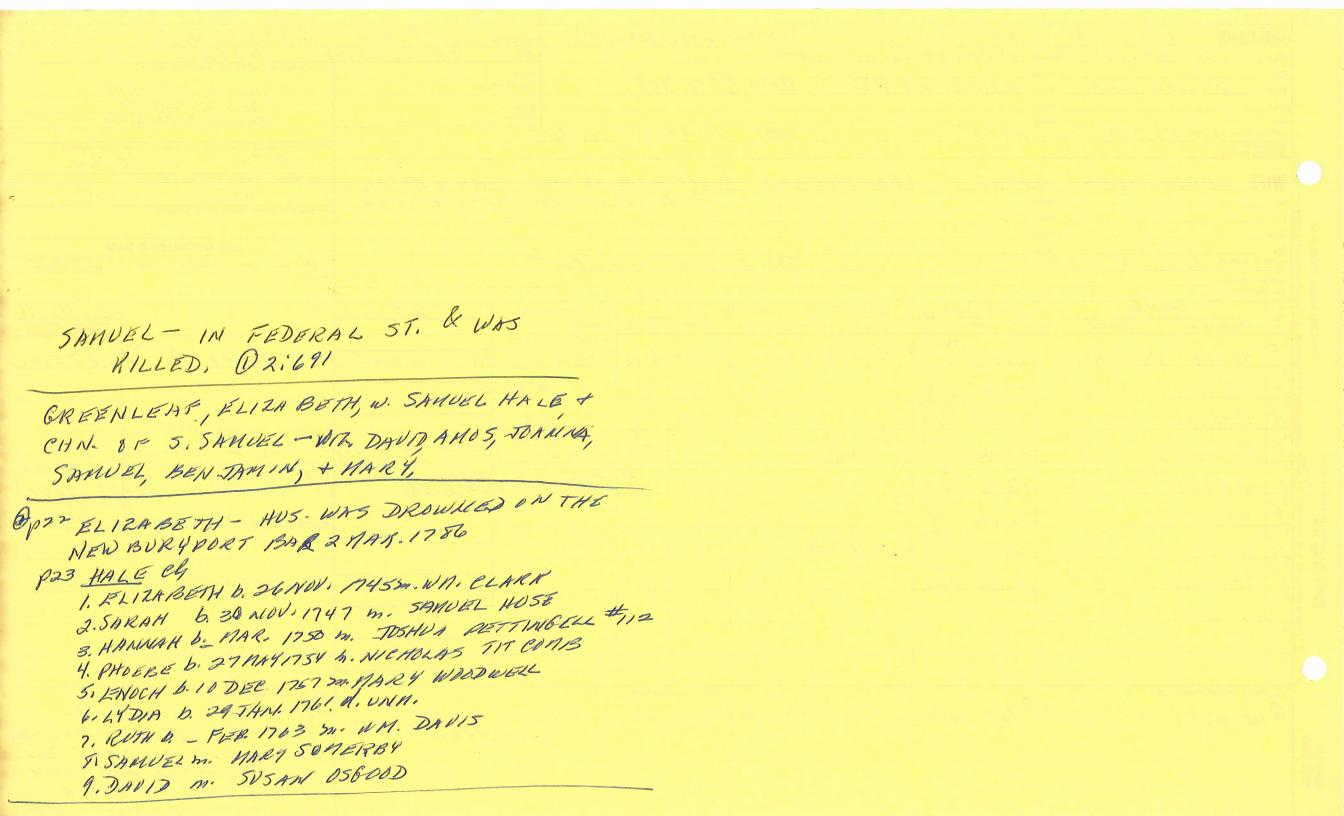 SAMUEL — IN FEDERAL ST. & WAS
KILLED. ① 2:691
GREENLEAF, ELIZABETH, w. SAMUEL HALE, +
CHN. OF S. SAMUEL — VIZ DAVID, AMOS, JOANNA,
SAMUEL, BENJAMIN, + MARY.
② p22 ELIZABETH — HUS. WAS DROWNED ON THE
NEWBURYPORT BAR 2 MAR. 1786
p23 HALE Ch
1. ELIZABETH b. 26 NOV. 1745 m. WM. CLARK
2. SARAH b. 30 NOV. 1747 m. SAMUEL HOSE
3. HANNAH b. _ MAR. 1750 m. JOSHUA PETTINGELL #112
4. PHOEBE b. 27 MAY 1754 m. NICHOLAS TITCOMB
5. ENOCH b. 10 DEC. 1757 m. MARY WOODWELL
6. LYDIA b. 29 JAN. 1761. d. UNM.
7. RUTH b. _ FEB. 1763 m. WM. DAVIS
8. SAMUEL m. MARY SOMERBY
9. DAVID m. SUSAN OSGOOD